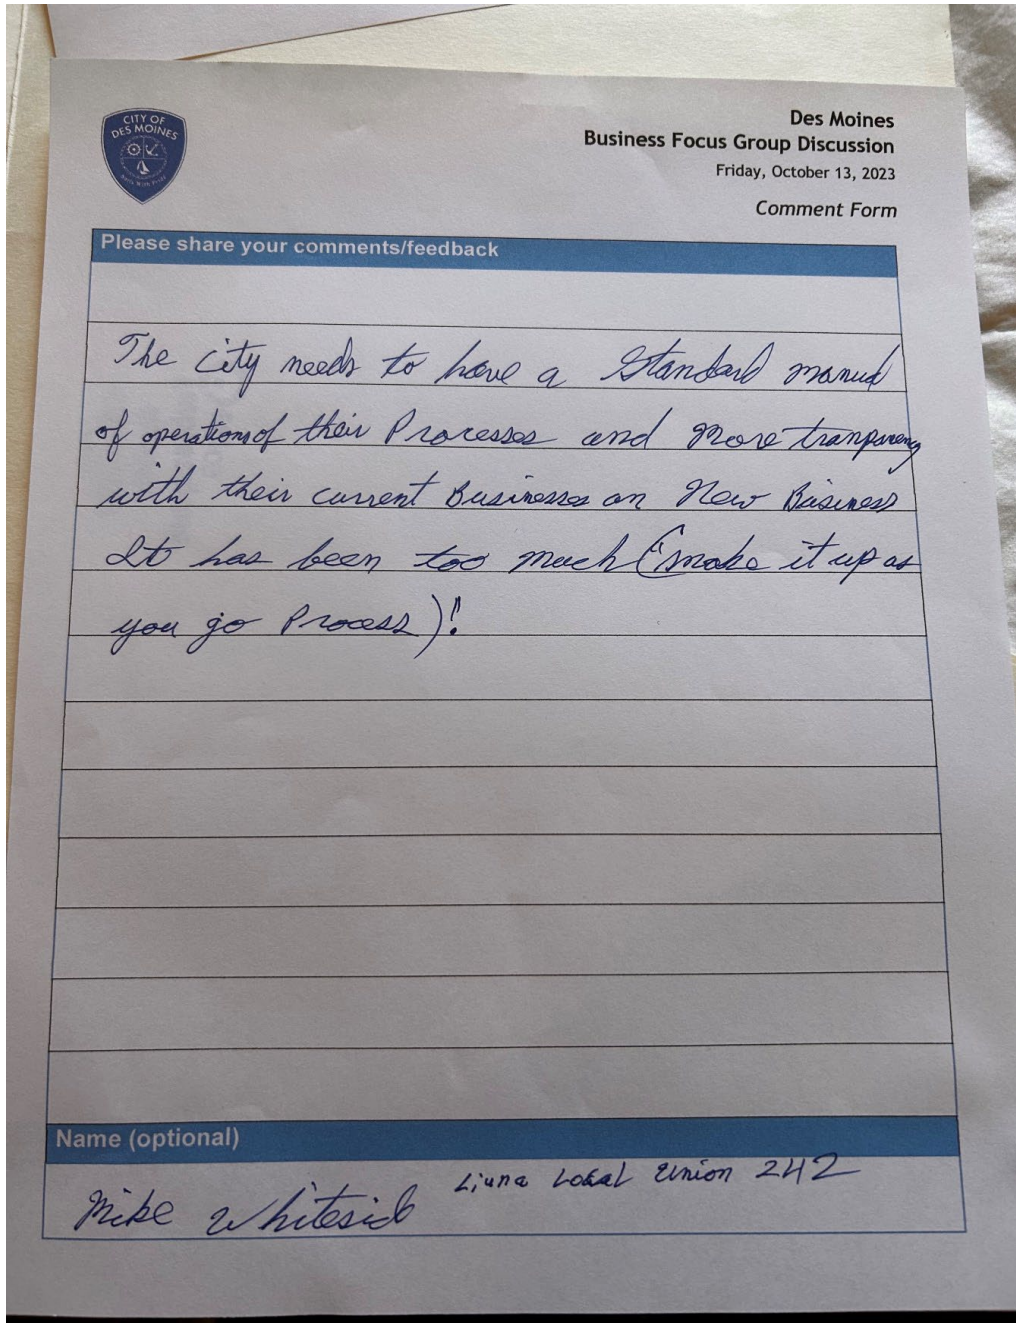 CITY OF
DES MOINES
Des Moines
Business Focus Group Discussion
Friday, October 13, 2023
Comment Form
Please share your comments/feedback
The city needs to have a Standard manual
of operations of their Processes and More tranparency
with their current Businesses on New Business
It has been too much ("make it up as
you go Process)!"
Name (optional)
Liuna Local Union 242
Mike Whiteside